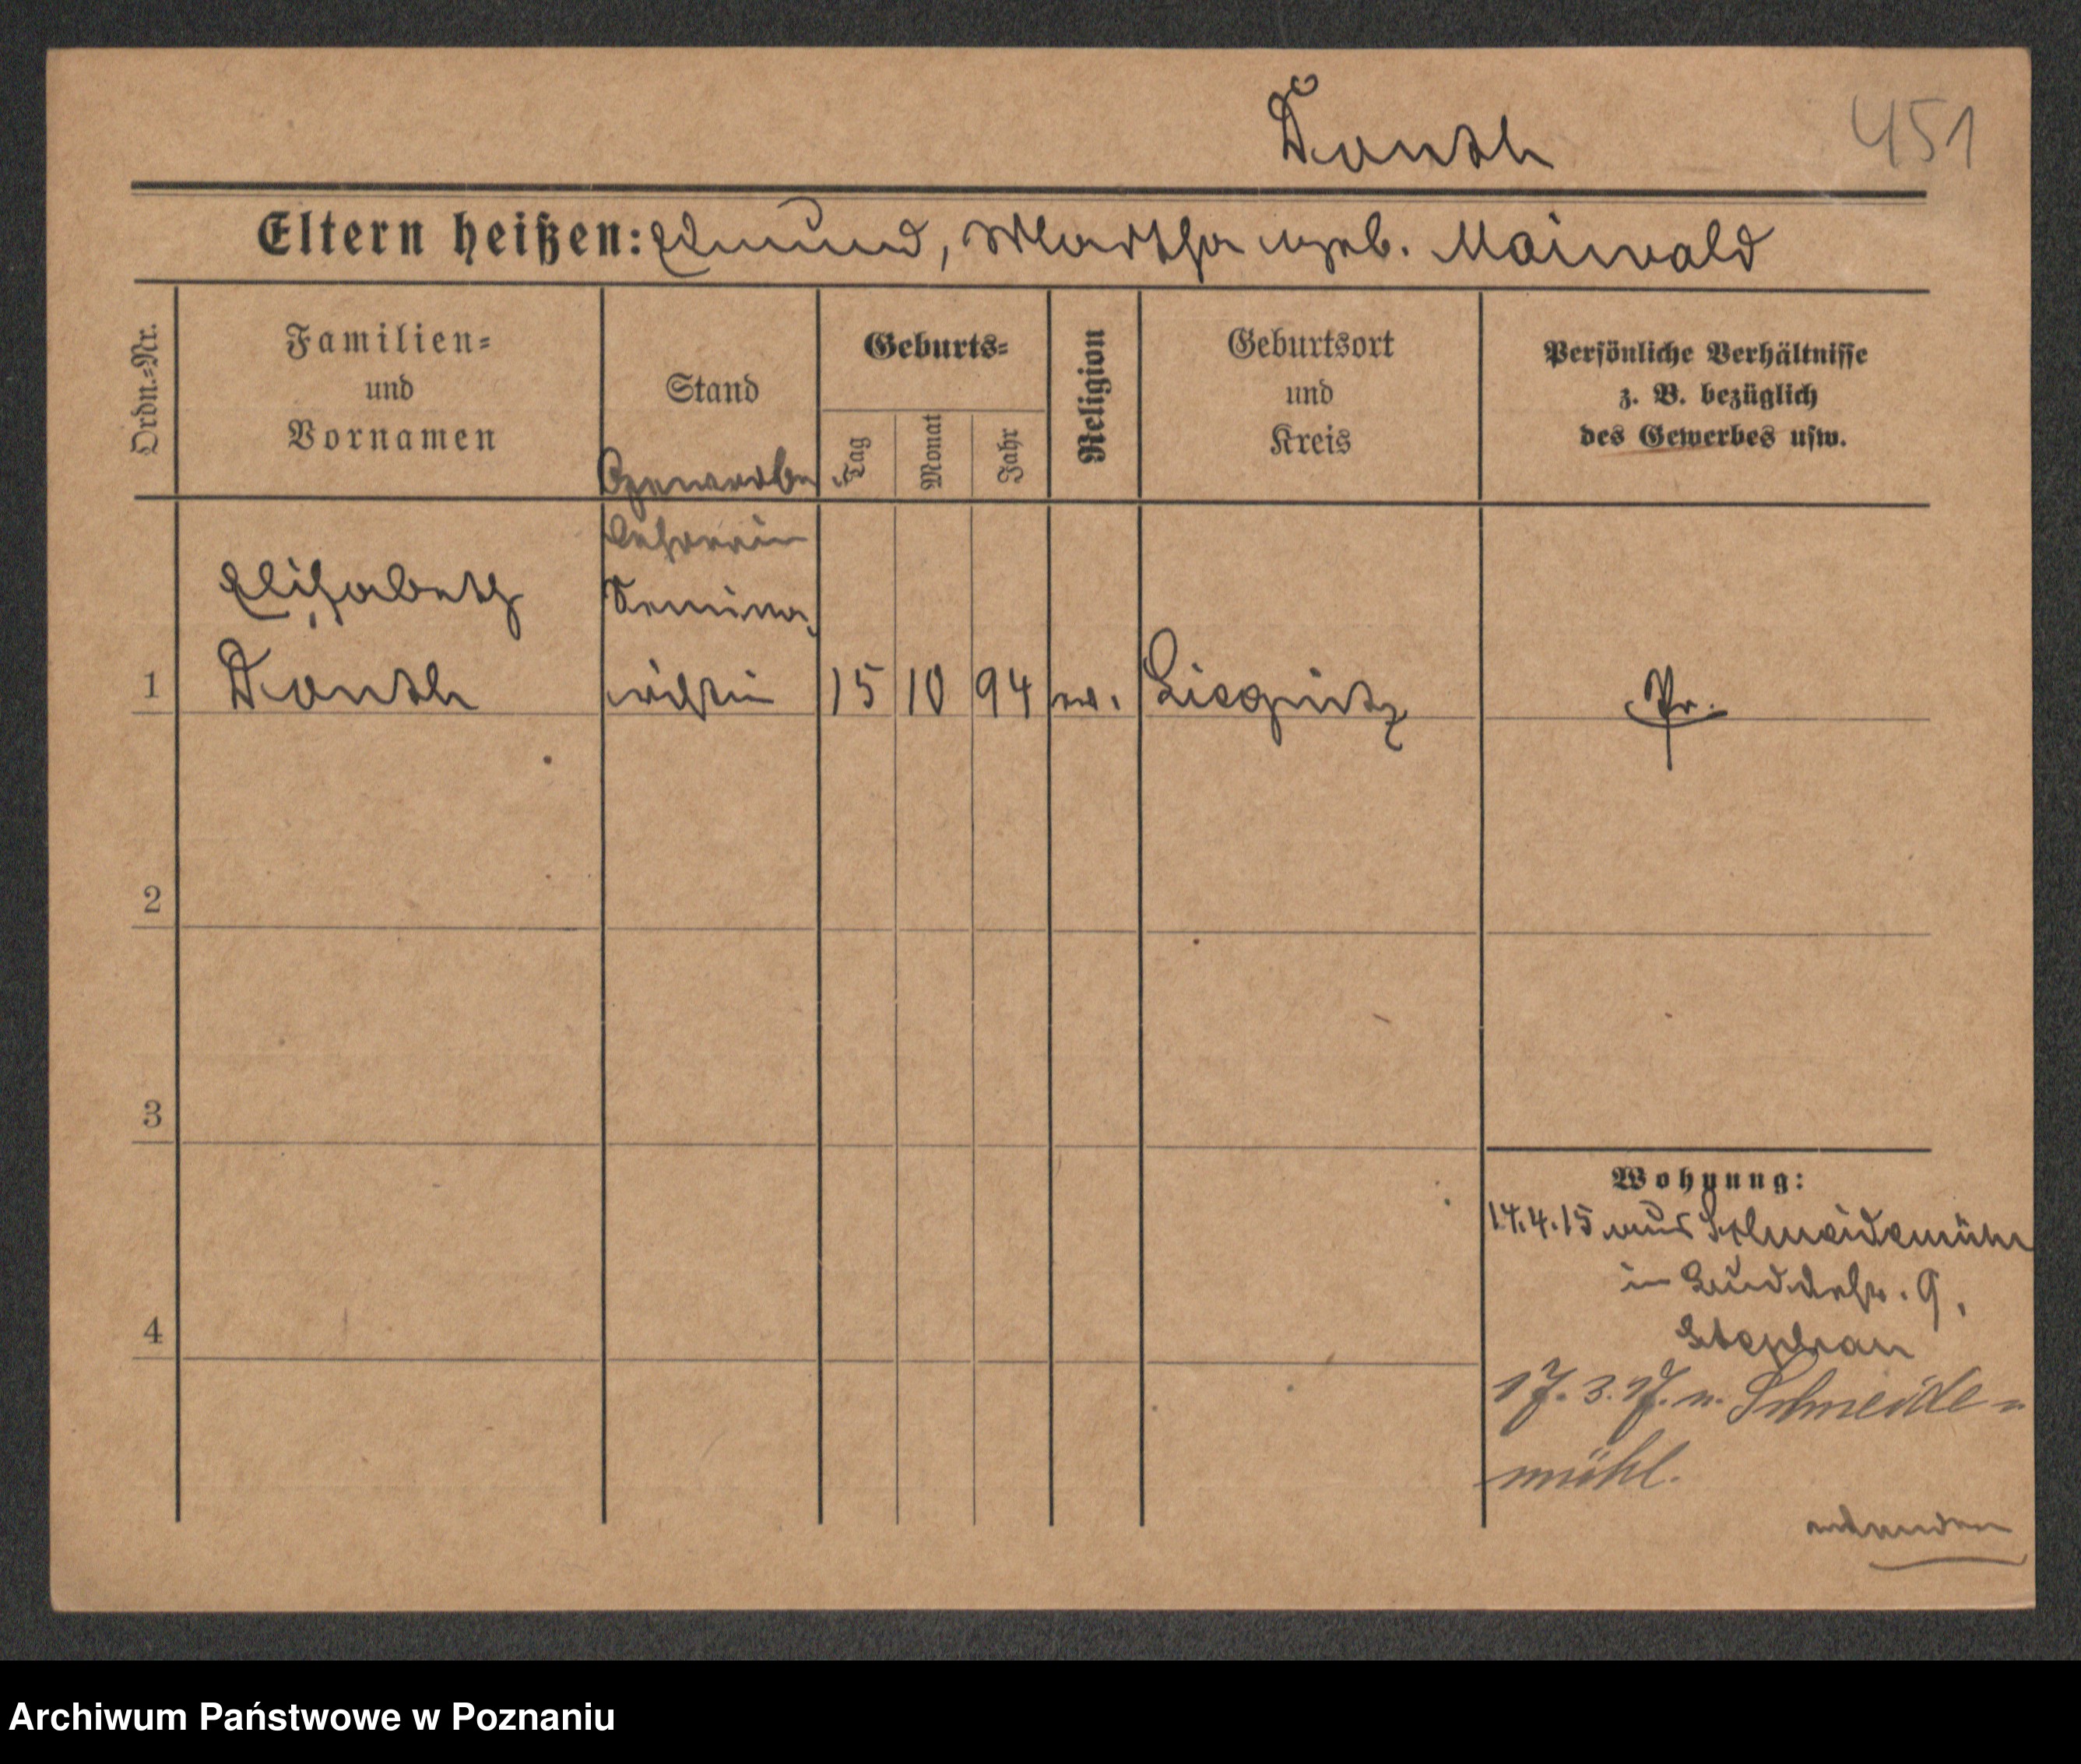 Donth
451
Eltern heißen: Edmund, Martha geb. Maiwald
Ordn.=Nr.
Familien=
und
Vornamen
Stand
Geburts=
Tag
Monat
Jahr
Religion
Geburtsort
und
Kreis
Persönliche Verhältnisse
z. B. bezüglich
des Gewerbes usw.
Gewerbe
lehrerin
Elisabeth
Semina
1
Donth
ristin
15
10
94
ev.
Liegnitz
Pr.
2
3
4
Wohnung:
14.4.15 aus Schneidemühl
in Buddestr. 9,
Stephan
17.3.17. n. Schneide=
mühl.
Archiwum Państwowe w Poznaniu